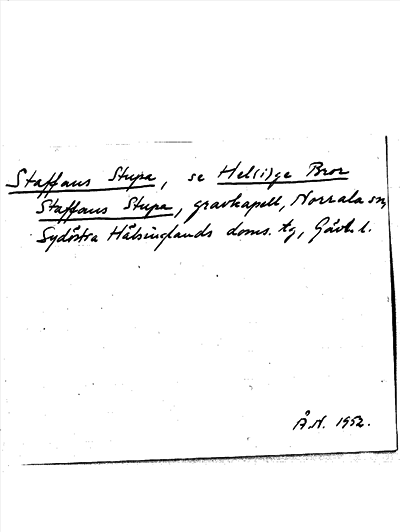 Staffans Stupa, se Hel(i)ge Bror
Staffans Stupa, gravkapell, Norrala sn,
Sydöstra Hälsinglands doms. tg, Gävl. l.
Å.N. 1952.